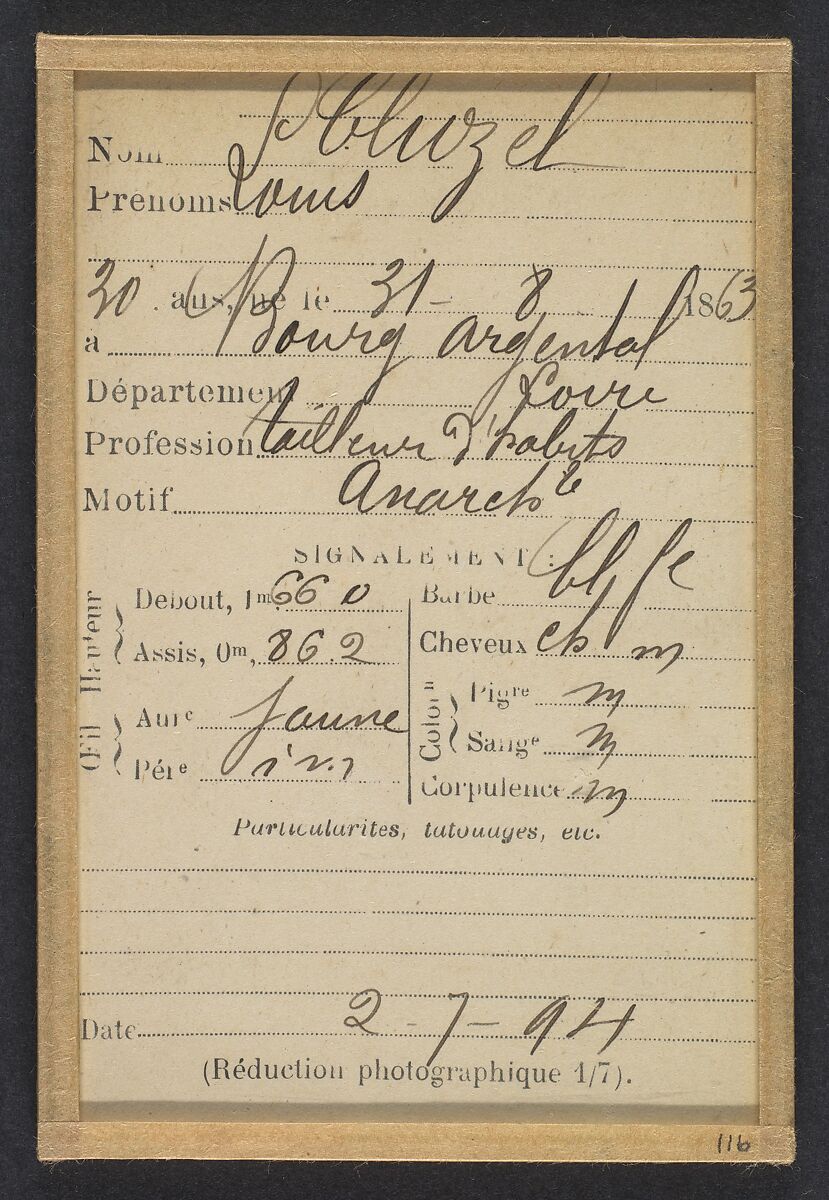 Nom Cluzel
Prénoms Louis
30 ans, né le 31 - 8 1863
à Bourg Argental
Département Loire
Profession tailleur d'habits
Motif Anarch
SIGNALEMENT :
Hauteur
Debout, 1m, 66 0
Assis, 0m, 86.2
Œil
Aure Jaune
Pére
Barbe bl. fe
Cheveux ch m
Coloron
Pigre m
Sange m
Corpulence m
Particularités, tatouages, etc.
Date 2 - 7 - 94
(Réduction photographique 1/7).
116